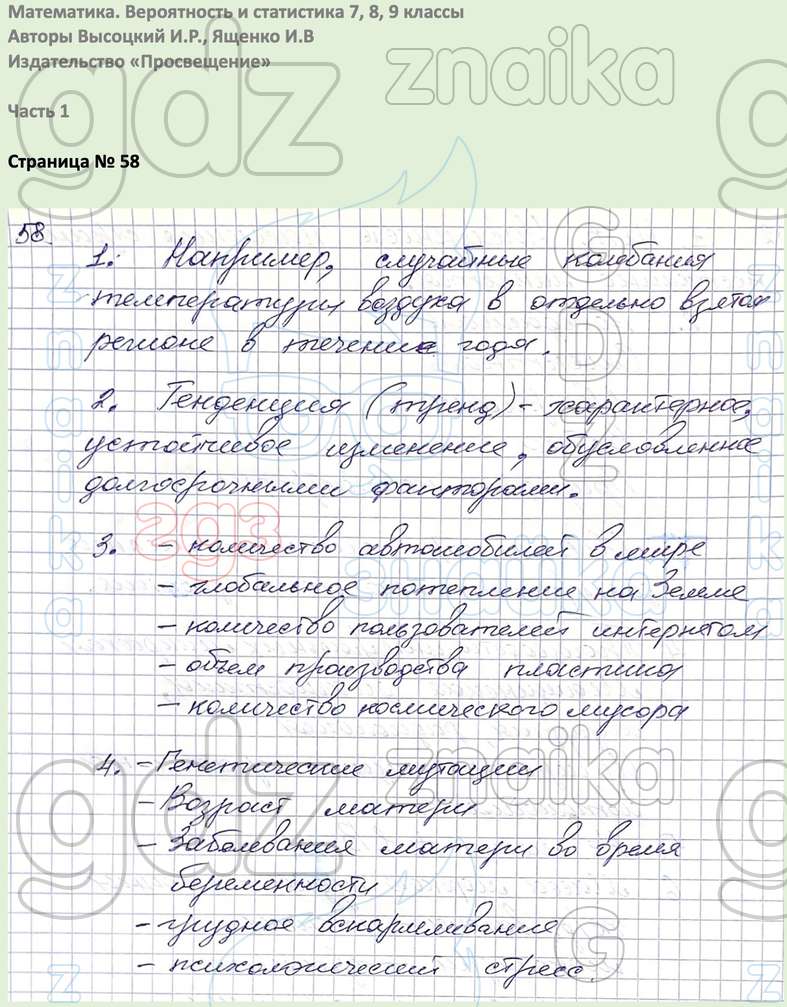 Математика. Вероятность и статистика 7, 8, 9 классы
Авторы Высоцкий И.Р., Ященко И.В
Издательство «Просвещение»
Часть 1
Страница № 58
58.
1. Например, случайные колебания
температуры воздуха в отдельно взятом
регионе в течение года.
2. Тенденция (тренд) - характерное,
устойчивое изменение, обусловленное
долгосрочными факторами.
3. - количество автомобилей в мире
- глобальное потепление на Земле
- количество пользователей интернетом
- объем производства пластика
- количество космического мусора
4. - Генетические мутации
- Возраст матери
- Заболевания матери во время
беременности
- грудное вскармливание
- психологический стресс
gdz
znaika
gdz
znaika
гдз
знайка
GDZ
G
znaika
znaika